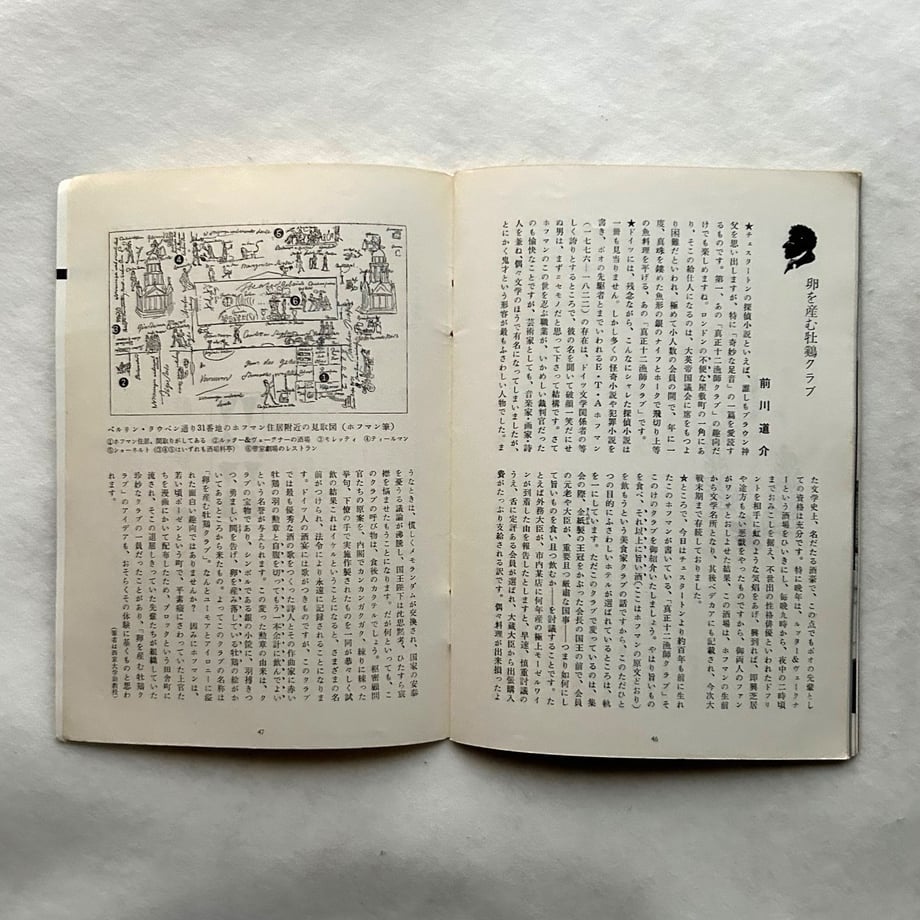 卵を産む牡鶏クラブ
前川道介
★チェスタートンの探偵小説といえば、誰しもブラウン神
父を思い出しますが、特に「奇妙な足音」の一篇を愛読す
るものです。第一、あの「真正十二漁師クラブ」の趣向だ
けでも楽しめますね。ロンドンの不便な屋敷町の一角にあ
り、そこの給仕人になるのは、大英帝国議会に席をもつよ
り困難だといわれ、極めて小人数の会員の間で、年に一
度、真珠を鏤めた魚形の銀のナイフとホークで飛切り上等
の魚料理を平げる、あの「真正十二漁師クラブ」です。
★ドイツには、残念ながら、こんなにシャレた探偵小説は
一冊も見当りません。しかし多くの怪奇小説や犯罪小説を
書き、ポオの先駆者とまでいわれるE・T・Aホフマン
（一七七六―一八二二）の存在は、ドイツ文学関係者の等
しく誇りとするところで、彼の名を聞いて破顔一笑だにせ
ぬ男は、まずニセモノだと思って下さって結構です。さて
ホフマンのこの世を忍ぶ職業が、いかめしい裁判官だった
のも愉快なことですが、芸術家としても、音楽家・画家・詩
人を兼ね、偶々文学のほうで有名になってしまいましたが、
とにかく鬼才という形容が最もふさわしい人物でした。ま
た文学史上、名だたる酒豪で、この点でもポオの先輩とし
ての資格は充分です。特に晩年は、ルッター＆ヴェークナ
ーという酒場をひいきにし、毎晩九時から、夜中の二時頃
までおみこしを据え、不世出の性格俳優といわれたドフリ
ントを相手に虹のような気焔をあげ、興到れば、即興芝居
や途方もない悪戯をやったものですから、御両人のファン
がワンサとおしよせた結果、この酒場は、ホフマンの生前
から文学名所となり、其後ベデカアにも記載され、今次大
戦末期まで存続しておりました。
★ところで、今日はチェスタートンより約百年も前に生れ
たこのホフマンが書いている、「真正十二漁師クラブ」そ
このけのクラブを御紹介いたしましょう。やはり旨いもの
を食べ、それ以上に旨い酒（ここはホフマンの原文どおり）
を飲もうという美食家クラブの話ですから、このただひと
つの目的にふさわしいホテルが選ばれているところは、軌
を一にしています。ただこのクラブで変っているのは、集
会の際、金紙製の王冠をかぶった会長の国王の前で、会員
の元老や大臣が、重要且つ厳粛な国事――つまり如何にし
て旨いものを食い且つ飲むか――を討議することです。た
とえば外務大臣が、市内某店に何年産の極上モーゼルワイ
ンが到着した由を報告したとしますと、早速、慎重討議の
うえ、舌に定評ある会員が選ばれ、大蔵大臣から出張購入
費がたっぷり支給される訳です。偶々料理が出来損ったよ
46
ベルリン・タウベン通り31番地のホフマン住居附近の見取図（ホフマン筆）
①ホフマン住居、間取りがしてある ②ルッター＆ヴェーグナーの酒場 ③モレッティ ④ティールマン
⑤ショーネルト（③④⑤はいずれも酒場料亭） ⑥帝室劇場のレストラン
うなときは、慌しくメモランダムが交換され、国家の安泰
を憂うる議論が沸騰し、国王陛下は沈思黙考、ひたすら宸
襟を悩ませたもうことになります。だが何といっても、こ
のクラブの呼び物は、食後のカクテルでしょう。枢密顧問
官たちの原案を、内閣でカンカンガクガク、練りに練った
挙句、下僚の手で実施作製されたものを一同が恭々しく試
飲の結果これはイケルということになると、さまざまの名
前がつけられ、法令により永遠に記録されることになりま
す。ドイツ人の酒宴には歌がつきものですが、このクラブ
では最も優秀な酒の歌をつくった詩人とその作曲家に赤い
牡鶏の羽の勲章と自腹を切ってもう一本余計に飲んでよい
という名誉が与えられます。この変った勲章の由来は、ク
ラブの宝物であり、シンボルである銀の小皿に、羽搏きつ
つ、勇ましい閧を告げ、卵を産み落している牡鶏の絵がか
いてあるところから来たもの。よってこのクラブの名称は
「卵を産む牡鶏クラブ」。なんともユーモアとアイロニーに溢
れた面白い趣向ではありませんか？ 因みにホフマンは、
若い頃ポーゼンという町で、平素癪にさわっていた上官た
ちを漫画にかいて配布したため、プロックという田舎町に
流され、そこの退屈しきっていた先輩たちが組織していた
珍妙なクラブの一員だったことがあり、「卵を産む牡鶏ク
ラブ」のアイデアも、おそらくその体験に基くものと思わ
れます。
（筆者は西京大学助教授）
47